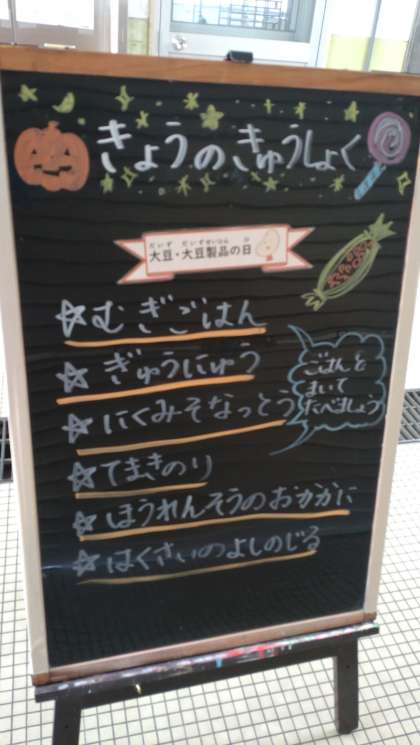 きょうのきゅうしょく
だいず だいずせいひん ひ
大豆・大豆製品の日
☆むぎごはん
☆ぎゅうにゅう
☆にくみそなっとう
ごはんと
まいて
たべましょう
☆てまきのり
☆ほうれんそうのおかかに
☆はくさいのよしのじる